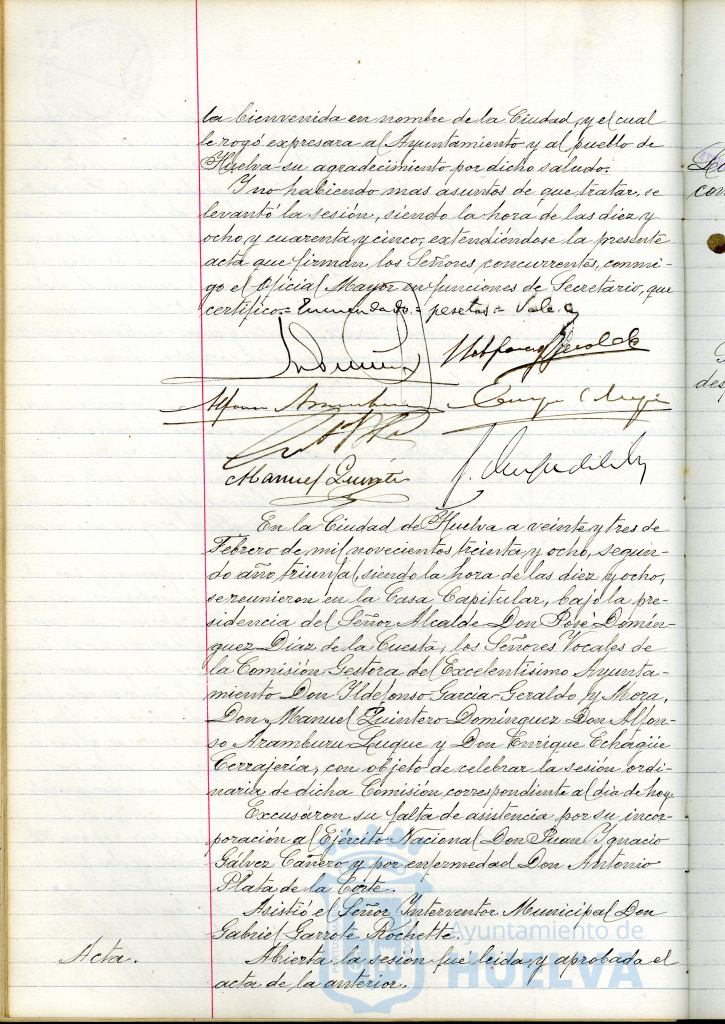 la bienvenida en nombre de la Ciudad, y el cual
le rogó expresara al Ayuntamiento y al pueblo de
Huelva su agradecimiento por dicho saludo.
Y no habiendo mas asuntos de que tratar, se
levantó la sesión, siendo la hora de las diez y
ocho y cuarenta y cinco, extendiéndose la presente
acta que firman los Señores concurrentes, conmi-
go el Oficial Mayor en funciones de Secretario, que
certifico.= Enmendado.= pesetas.= Vale.
Manuel Quintero
En la Ciudad de Huelva a veinte y tres de
Febrero de mil novecientos treinta y ocho, segun-
do año triunfal, siendo la hora de las diez y ocho,
se reunieron en la Casa Capitular, bajo la pre-
sidencia del Señor Alcalde Don José Domín-
guez Díaz de la Cuesta, los Señores Vocales de
la Comisión Gestora del Excelentísimo Ayunta-
miento Don Ildefonso Garcia-Geraldo y Mora,
Don Manuel Quintero Domínguez Don Alfon-
so Aramburu Luque y Don Enrique Echagüe
Cerrajería, con objeto de celebrar la sesión ordi-
naria de dicha Comisión correspondiente al dia de hoy.
Excusaron su falta de asistencia por su incor-
poración al Ejército Nacional Don Juan Ygnacio
Gálvez Cañero y por enfermedad Don Antonio
Plata de la Corte.
Asistió el Señor Interventor Municipal Don
Gabriel Garrote Rochette.
Acta. Abierta la sesión fué leida y aprobada el
acta de la anterior.
Ayuntamiento de
HUELVA